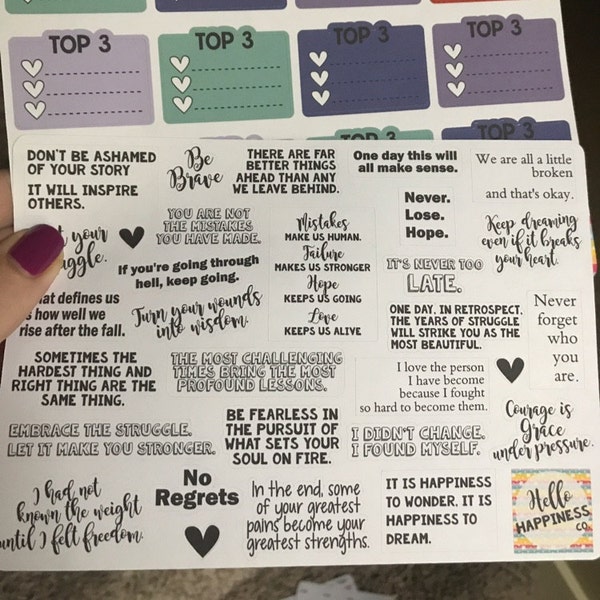 TOP 3
TOP 3
TOP 3
TOP 3
TOP 3
TOP 3
DON'T BE ASHAMED
OF YOUR STORY
IT WILL INSPIRE
OTHERS.
Be
Brave
THERE ARE FAR
BETTER THINGS
AHEAD THAN ANY
WE LEAVE BEHIND.
One day this will
all make sense.
We are all a little
broken
and that's okay.
your
YOU ARE NOT
THE MISTAKES
YOU HAVE MADE.
Mistakes
MAKE US HUMAN.
Failure
MAKES US STRONGER
Hope
KEEPS US GOING
Love
KEEPS US ALIVE
Never.
Lose.
Hope.
Keep dreaming
even if it breaks
your heart.
If you're going through
hell, keep going.
IT'S NEVER TOO
LATE.
defines us
how well we
rise after the fall.
Turn your wounds
into wisdom.
ONE DAY, IN RETROSPECT,
THE YEARS OF STRUGGLE
WILL STRIKE YOU AS THE
MOST BEAUTIFUL.
Never
forget
who
you
are.
SOMETIMES THE
HARDEST THING AND
RIGHT THING ARE THE
SAME THING.
THE MOST CHALLENGING
TIMES BRING THE MOST
PROFOUND LESSONS.
I love the person
I have become
because I fought
so hard to become them.
EMBRACE THE STRUGGLE.
LET IT MAKE YOU STRONGER.
BE FEARLESS IN
THE PURSUIT OF
WHAT SETS YOUR
SOUL ON FIRE.
I DIDN'T CHANGE.
I FOUND MYSELF.
Courage is
Grace
under pressure.
I had not
known the weight
until I felt freedom.
No
Regrets
In the end, some
of your greatest
pains become your
greatest strengths.
IT IS HAPPINESS
TO WONDER. IT IS
HAPPINESS TO
DREAM.
Hello
HAPPINESS
CO